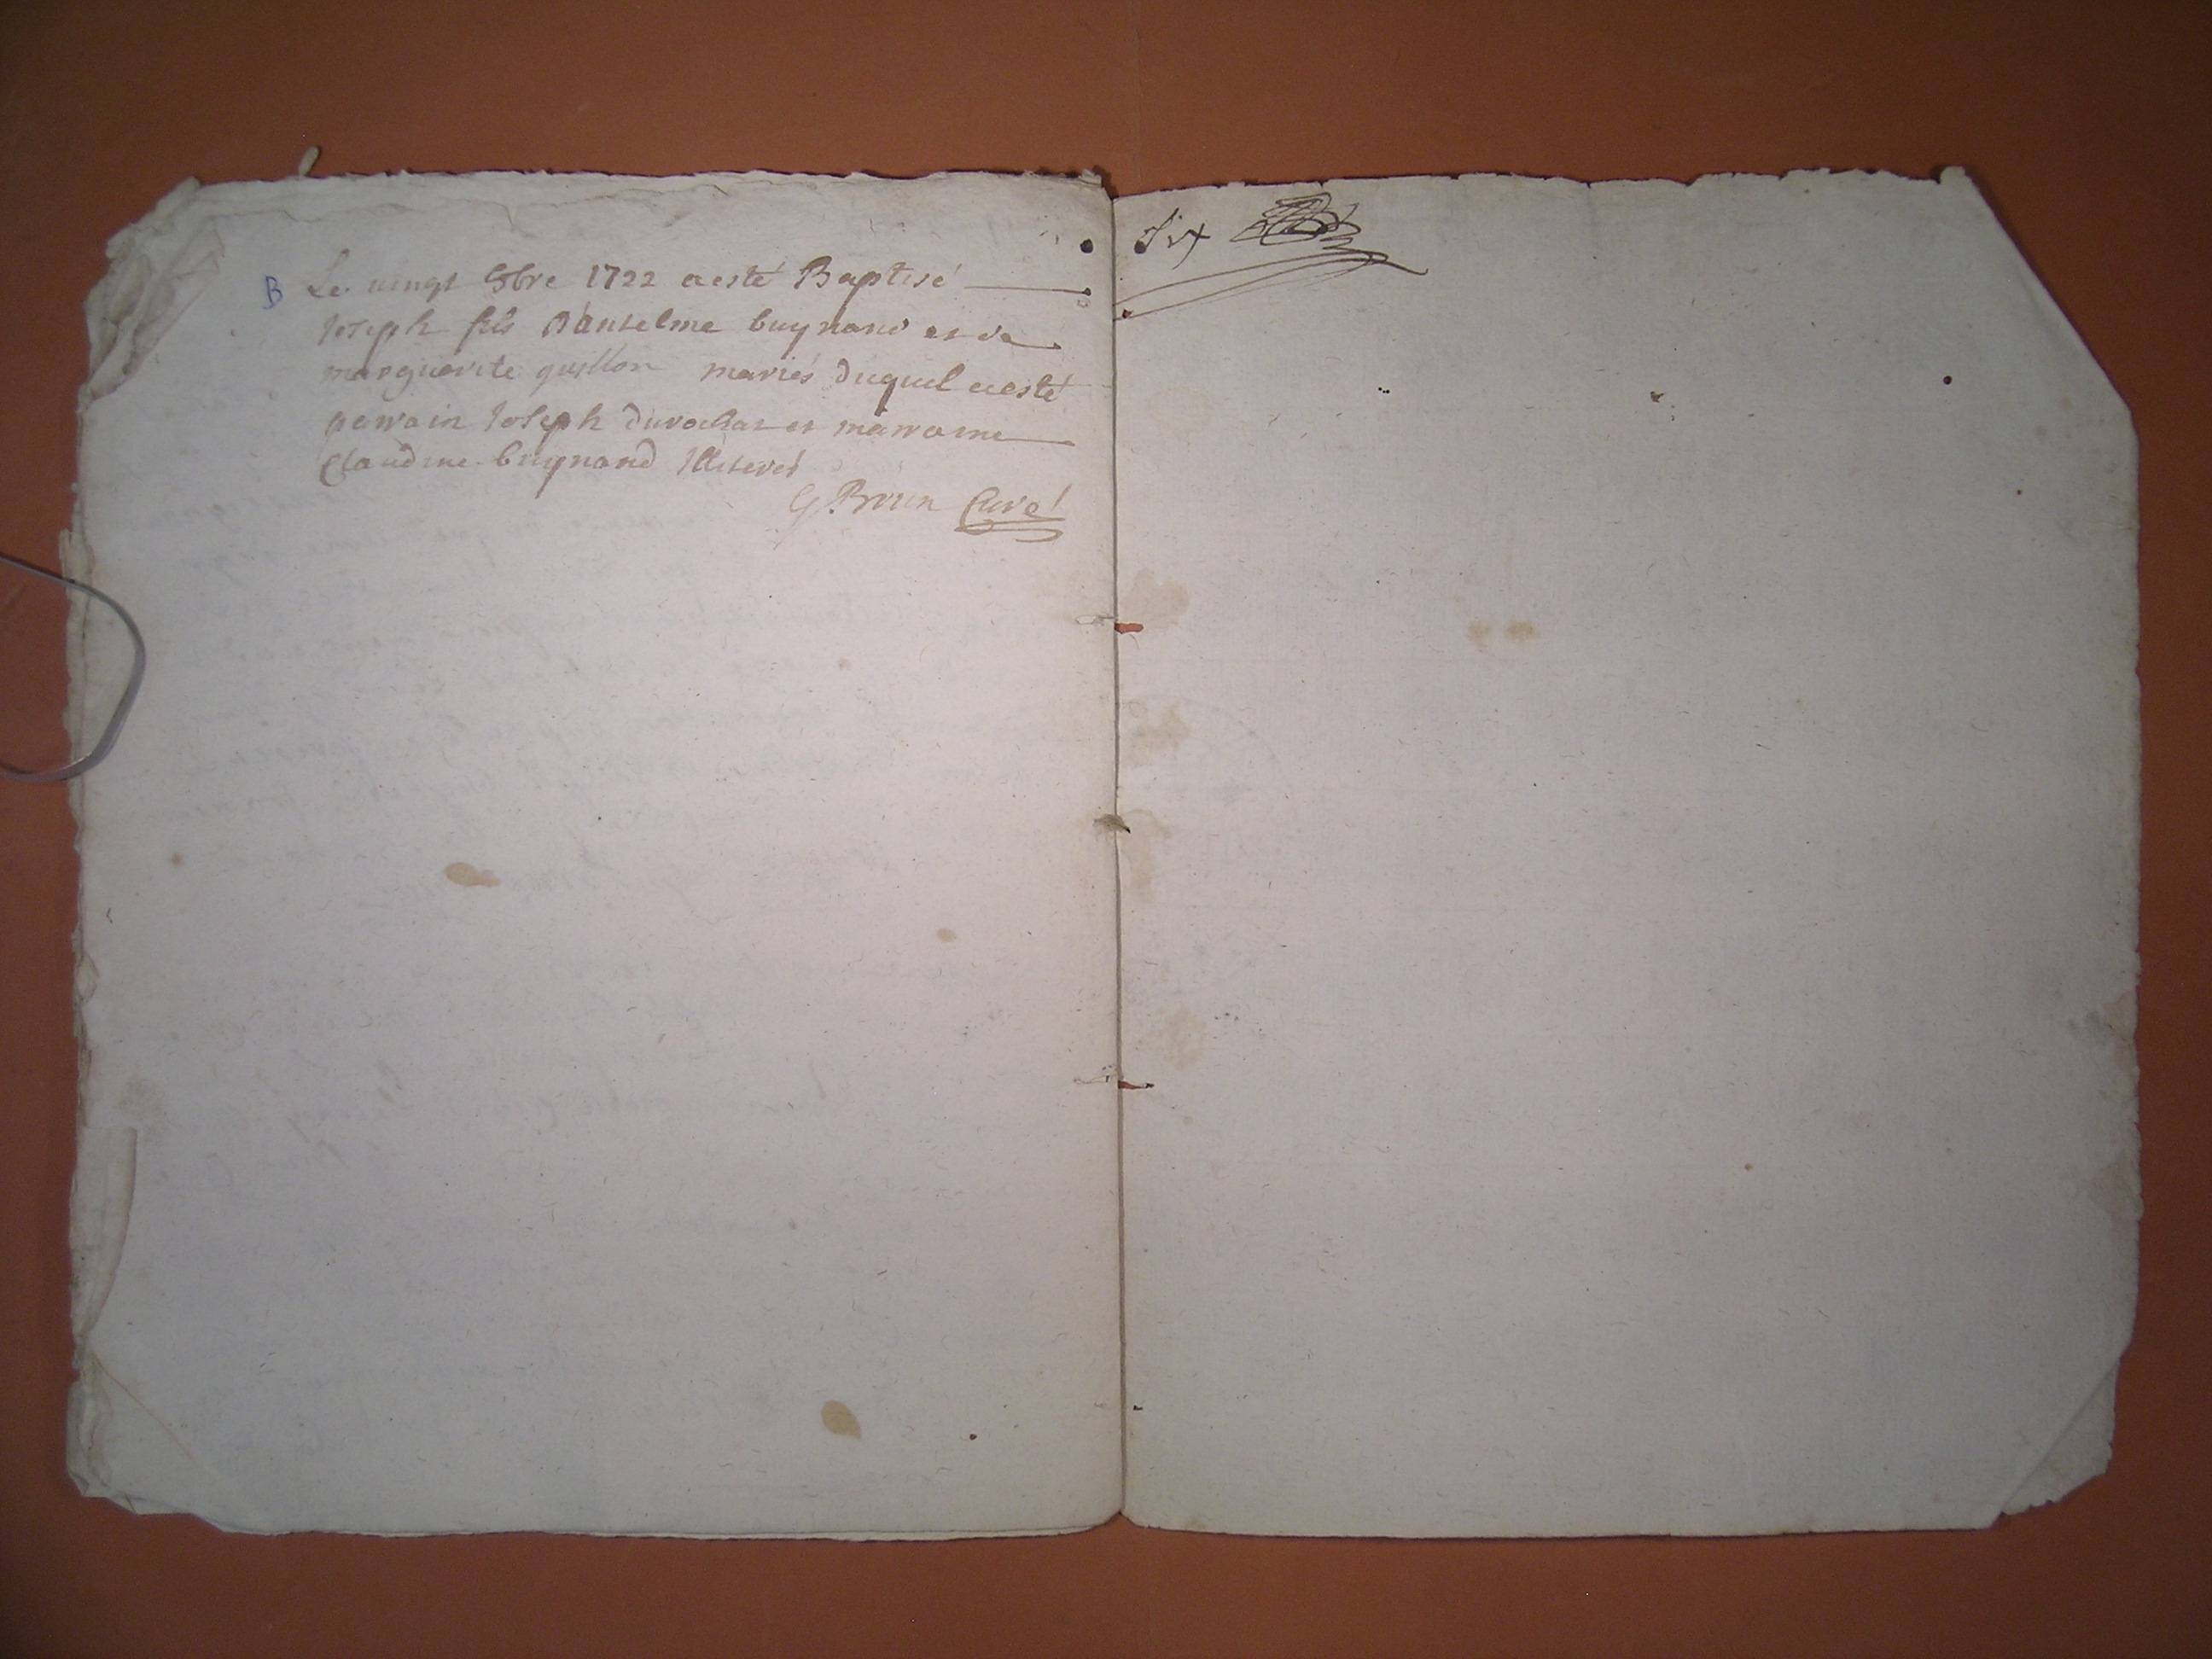 B Le vingt 9bre 1722 a esté Baptisé
Joseph fils D'antelme buynand et de
marguerite guillon mariés duquel a esté
parrain Joseph durochat et marraine
Claudine buynand Illiterés
G Brun Curé
Six